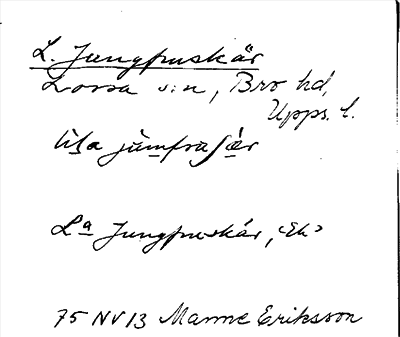 L. Jungfruskär
Lossa s:n, Bro hd,
Upps. l.
lịsa jùmfraʃæ̀r
La Jungfruskär, ‹Ek›
75 NV 13 Manne Eriksson